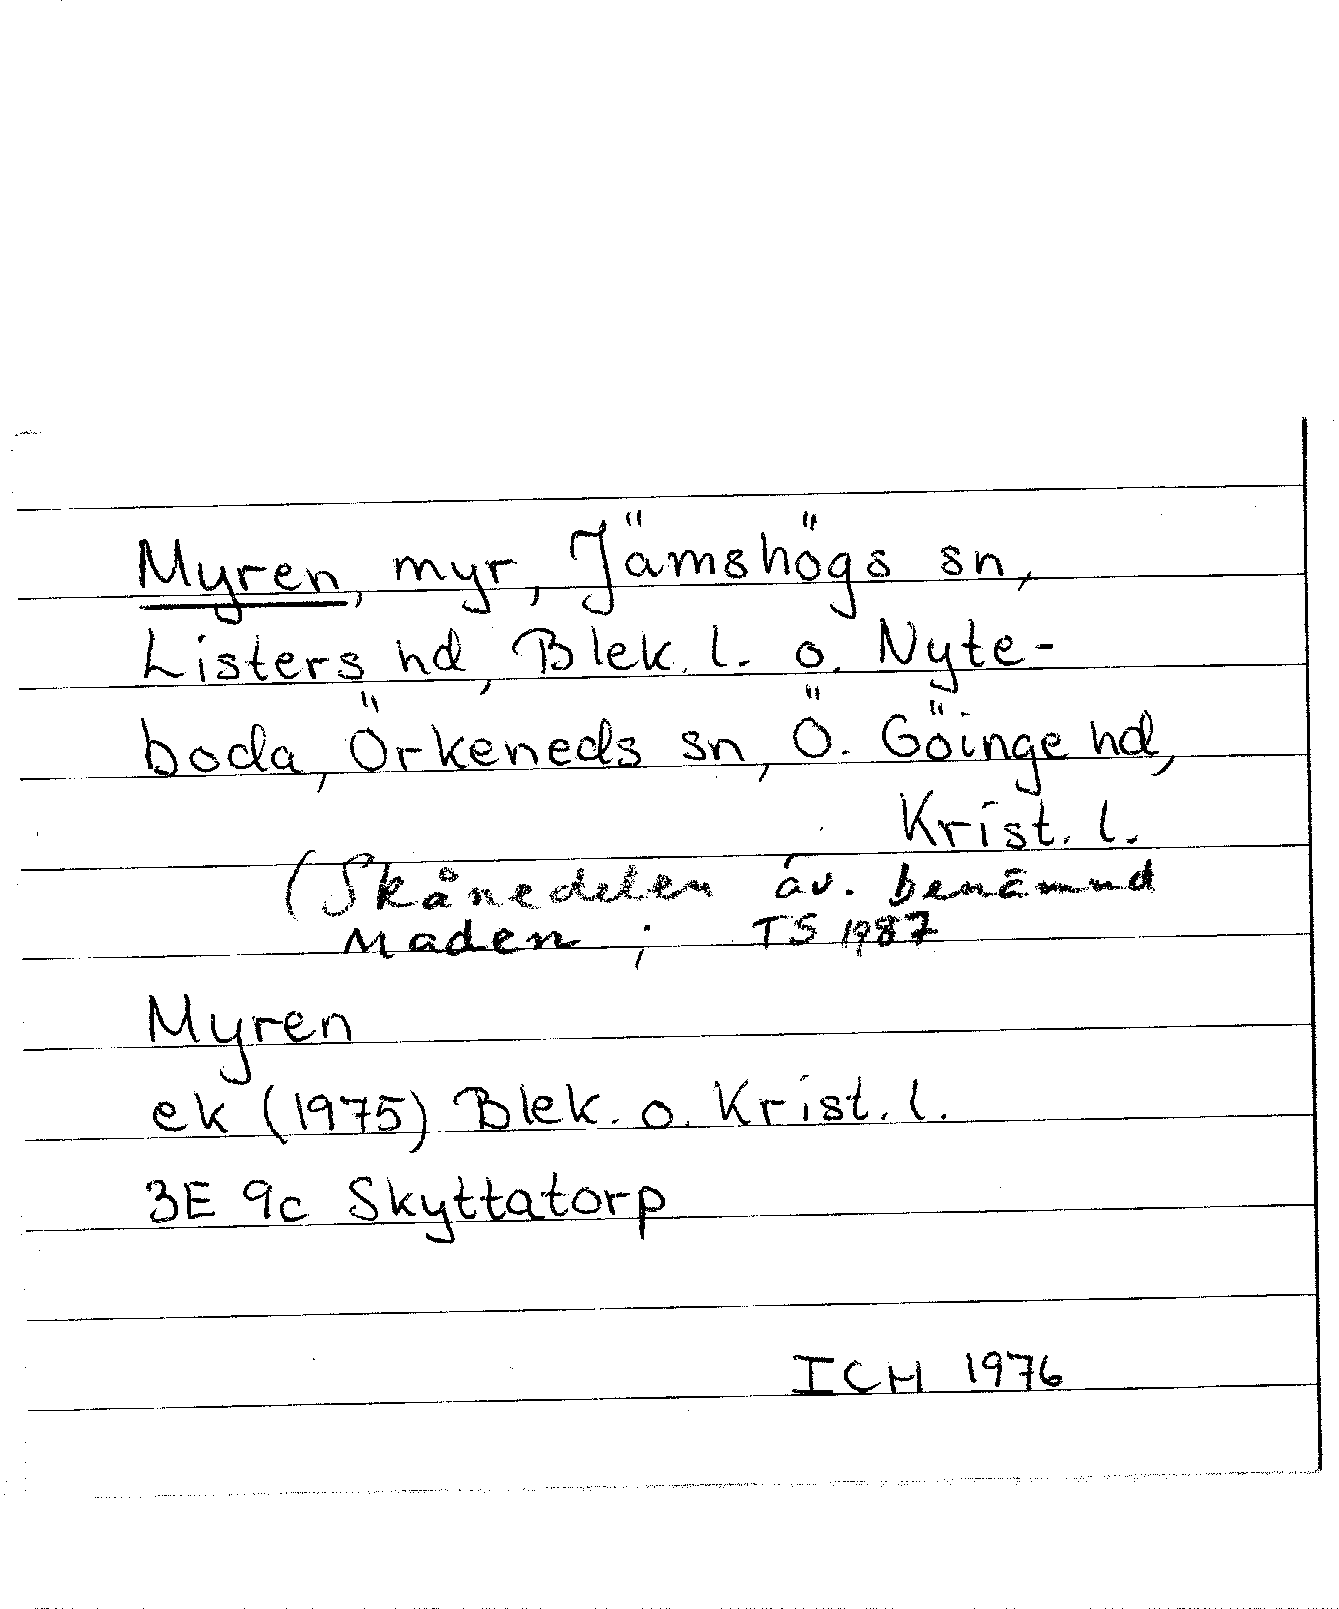 Myren, myr, Jämshögs sn,
Listers hd, Blek. l. o. Nyte-
boda, Örkeneds sn, Ö. Göinge hd,
Krist. l.
(Skånedelen äv. benämnd
Maden; TS 1987
Myren
ek (1975) Blek. o. Krist. l.
3E 9c Skyttatorp
ICH 1976